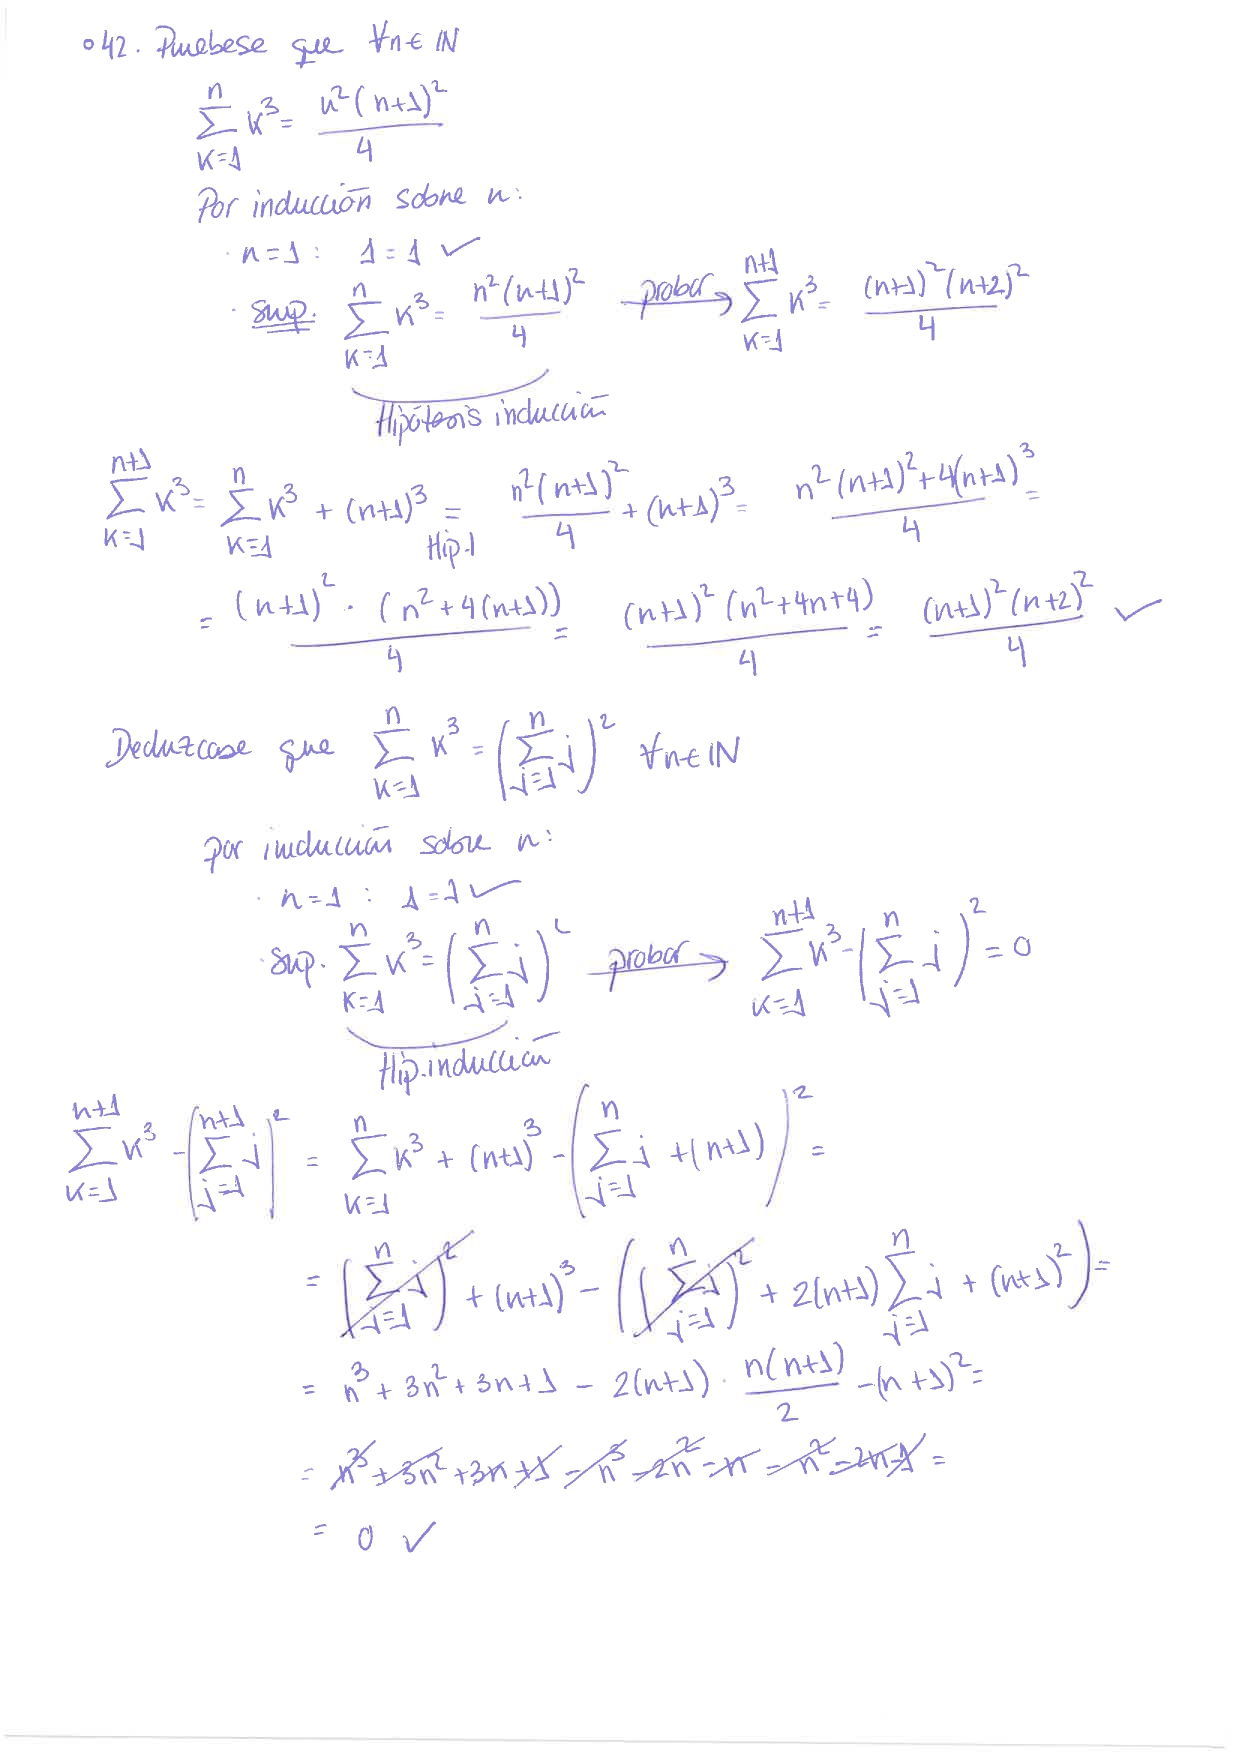 ∘42. Pruébese que ∀n∈ℕ
∑_{k=1}^{n} k³ = n²(n+1)²/4
Por inducción sobre n:
· n=1 : 1=1 ✓
· Sup. ∑_{k=1}^{n} k³ = n²(n+1)²/4 probar→ ∑_{k=1}^{n+1} k³ = (n+1)²(n+2)²/4
Hipótesis inducción
∑_{k=1}^{n+1} k³ = ∑_{k=1}^{n} k³ + (n+1)³ =_{Hip.I} n²(n+1)²/4 + (n+1)³ = (n²(n+1)²+4(n+1)³)/4 =
= (n+1)²·(n²+4(n+1))/4 = (n+1)²(n²+4n+4)/4 = (n+1)²(n+2)²/4 ✓
Dedúzcase que ∑_{k=1}^{n} k³ = (∑_{j=1}^{n} j)² ∀n∈ℕ
por inducción sobre n:
· n=1 : 1=1 ✓
· Sup. ∑_{k=1}^{n} k³ = (∑_{j=1}^{n} j)² probar→ ∑_{k=1}^{n+1} k³ - (∑_{j=1}^{n} j)² = 0
Hip. inducción
∑_{k=1}^{n+1} k³ - (∑_{j=1}^{n+1} j)² = ∑_{k=1}^{n} k³ + (n+1)³ - (∑_{j=1}^{n} j + (n+1))² =
= (∑_{j=1}^{n} j)² + (n+1)³ - ((∑_{j=1}^{n} j)² + 2(n+1)∑_{j=1}^{n} j + (n+1)²) =
= n³+3n²+3n+1 - 2(n+1)·n(n+1)/2 - (n+1)² =
= n³+3n²+3n+1-n³-2n²-n-n²-2n-1 =
= 0 ✓